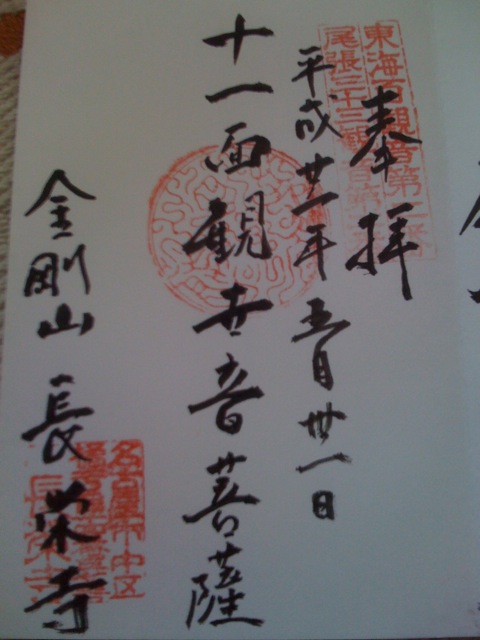 奉拝
東海百観音第
尾張三十三観音第
平成廿一年五月卅一日
十一面観世音菩薩
金剛山長栄寺
名古屋市中区